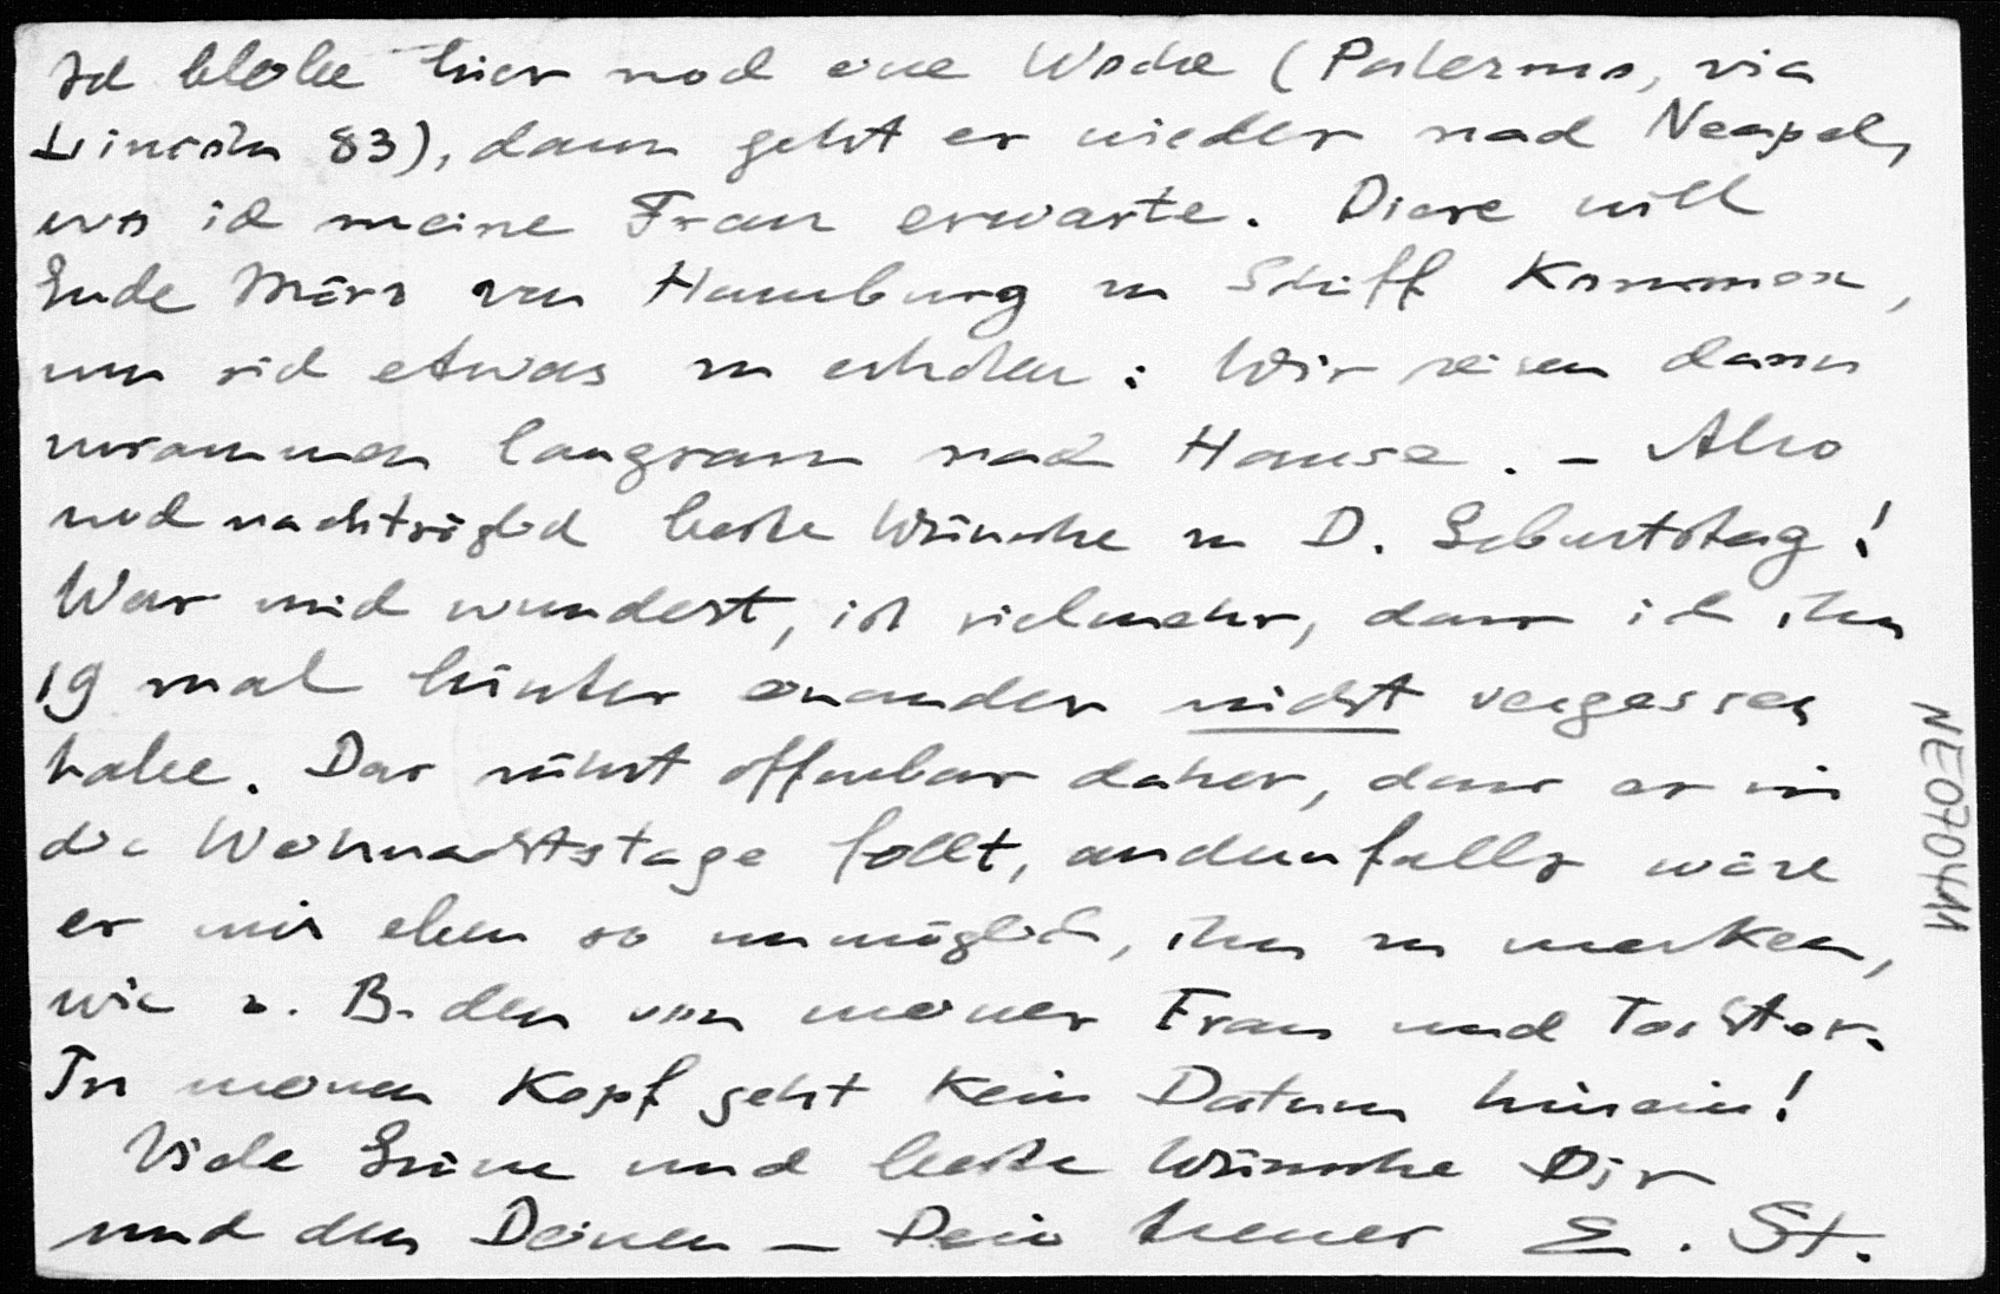 Ich bleibe hier noch eine Woche (Palermo, via
Lincoln 83), dann geht es wieder nach Neapel,
wo ich meine Frau erwarte. Diese will
Ende März von Hamburg zu Schiff kommen,
um sich etwas zu erholen: Wir reisen dann
zusammen langsam nach Hause. – Also
noch nachträglich beste Wünsche zu D. Geburtstag!
Was mich wundert, ist vielmehr, dass ich ihn
19 mal hinter einander nicht vergessen
habe. Das rührt offenbar daher, dass er in
die Weihnachtstage fällt, andernfalls wäre
es mir eben so unmöglich, ihn zu merken,
wie z. B. den von meiner Frau und Tochter.
In meinen Kopf geht kein Datum hinein!
Viele Grüsse und beste Wünsche Dir
und den Deinen – Dein treuer E. St.
NE070411